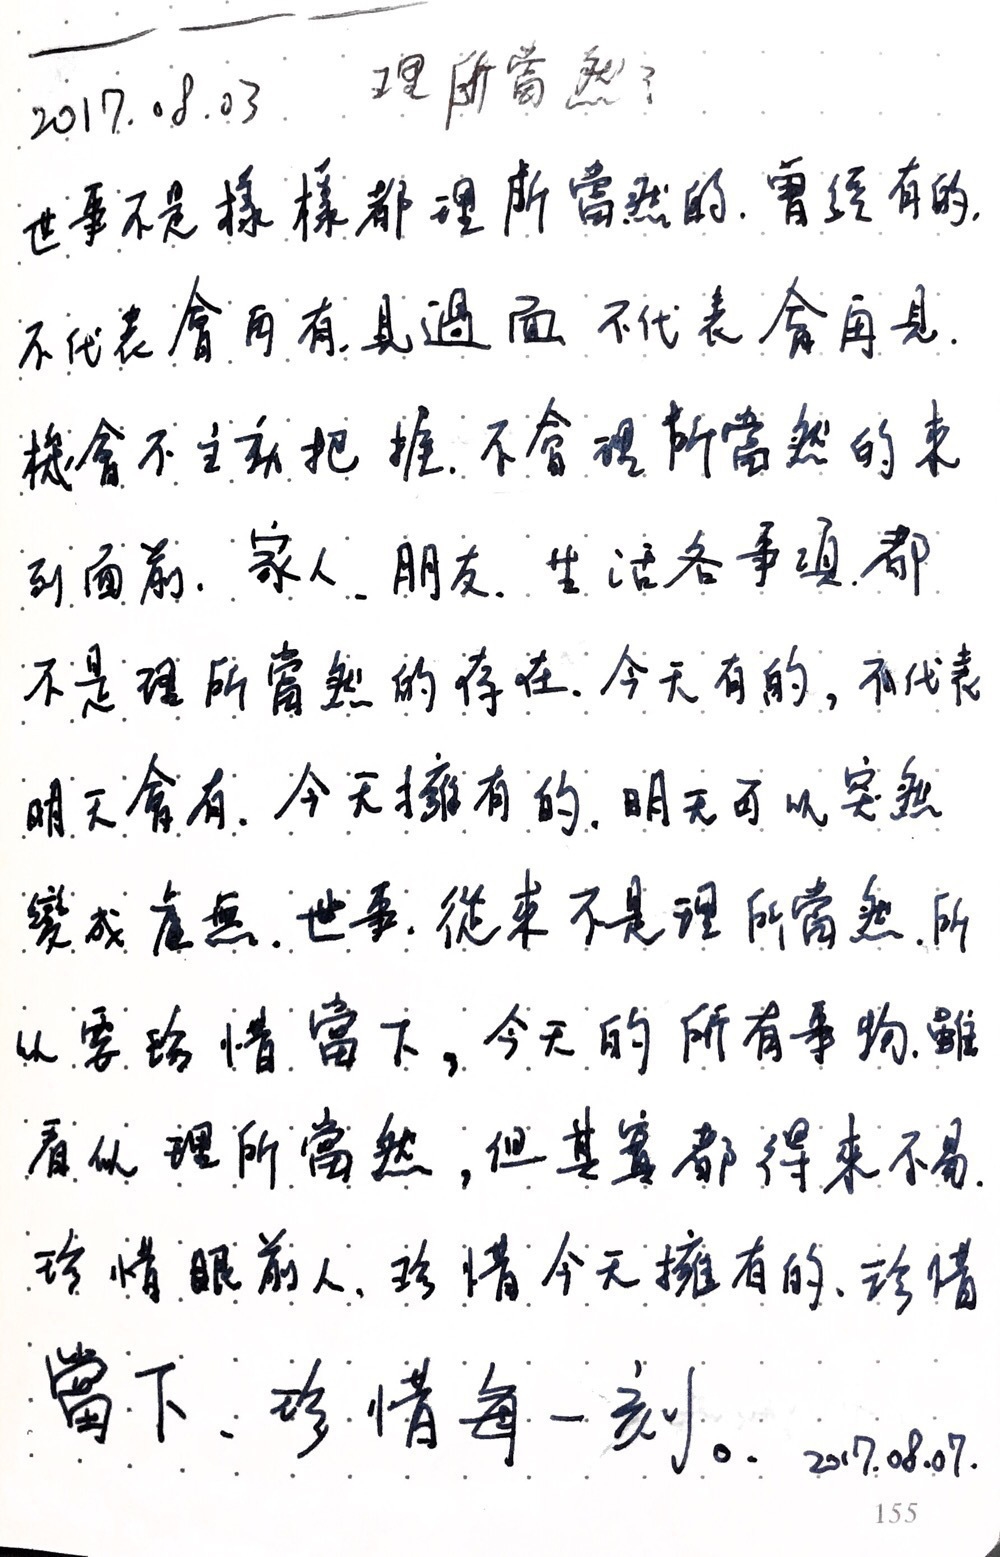 2017.08.03 理所當然?
世事不是樣樣都理所當然的.曾經有的.
不代表會再有.見過面 不代表會再見.
機會不主動把握.不會理所當然的來
到面前. 家人、朋友. 生活各事項.都
不是理所當然的存在.今天有的,不代表
明天會有.今天擁有的.明天可以突然
變成虛無.世事.從來不是理所當然.所
以要珍惜當下,今天的所有事物.雖
看似理所當然,但其實都得來不易.
珍惜眼前人、珍惜今天擁有的、珍惜
當下、珍惜每一刻。.
2017.08.07.
155